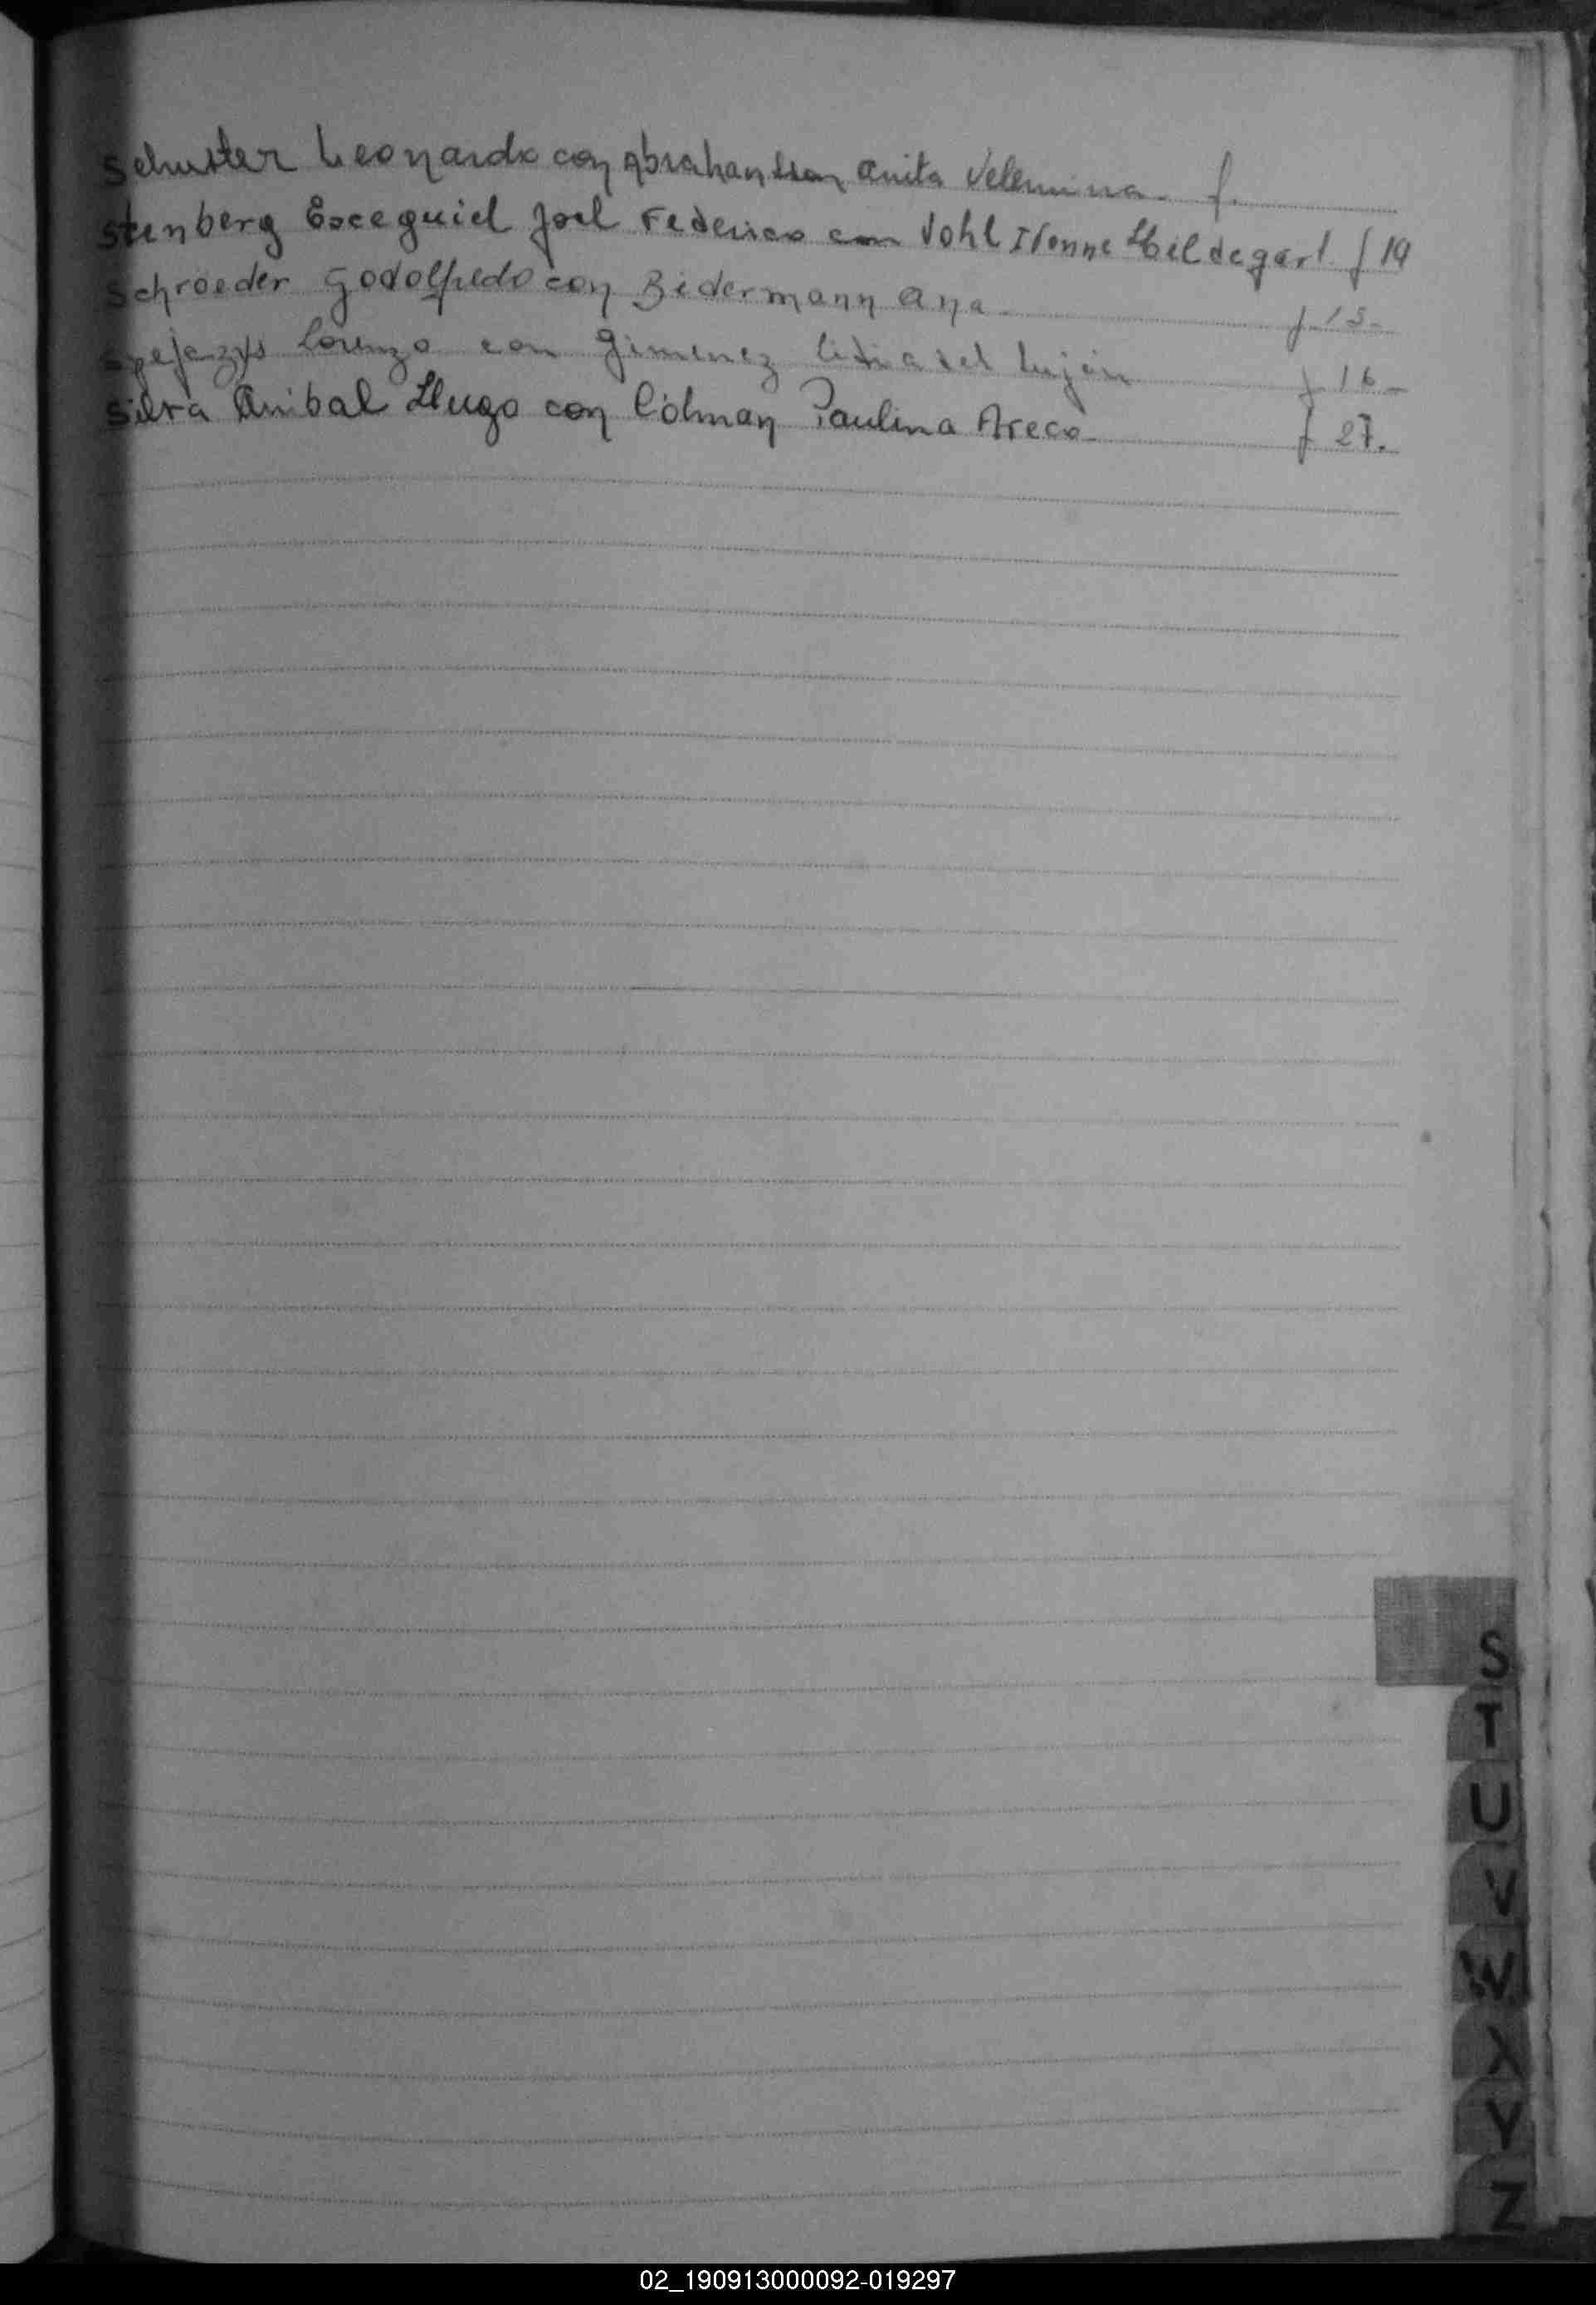 Schuster Leonardo con Abrahansson Anita Velemina. f.
Stenberg Esceguiel Joel Federico con Vohl Ivonne Hildegart f 19
Schroeder Godolfredo con Bidermann Ana f. 15.
Spejazys Lorenzo con Gimenez Lidia del Luján f 16
Silva Anibal Hugo con Cólman Paulina Areco f 27.
S
T
U
V
W
X
Y
Z
02_190913000092-019297